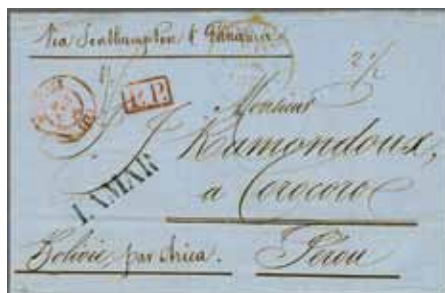 Via Southampton & Panama
2 1/2
P.P.
Monsieur
Ramondoux,
LAMAR
a Corocoro
Bolivie, par Arica.
Pérou